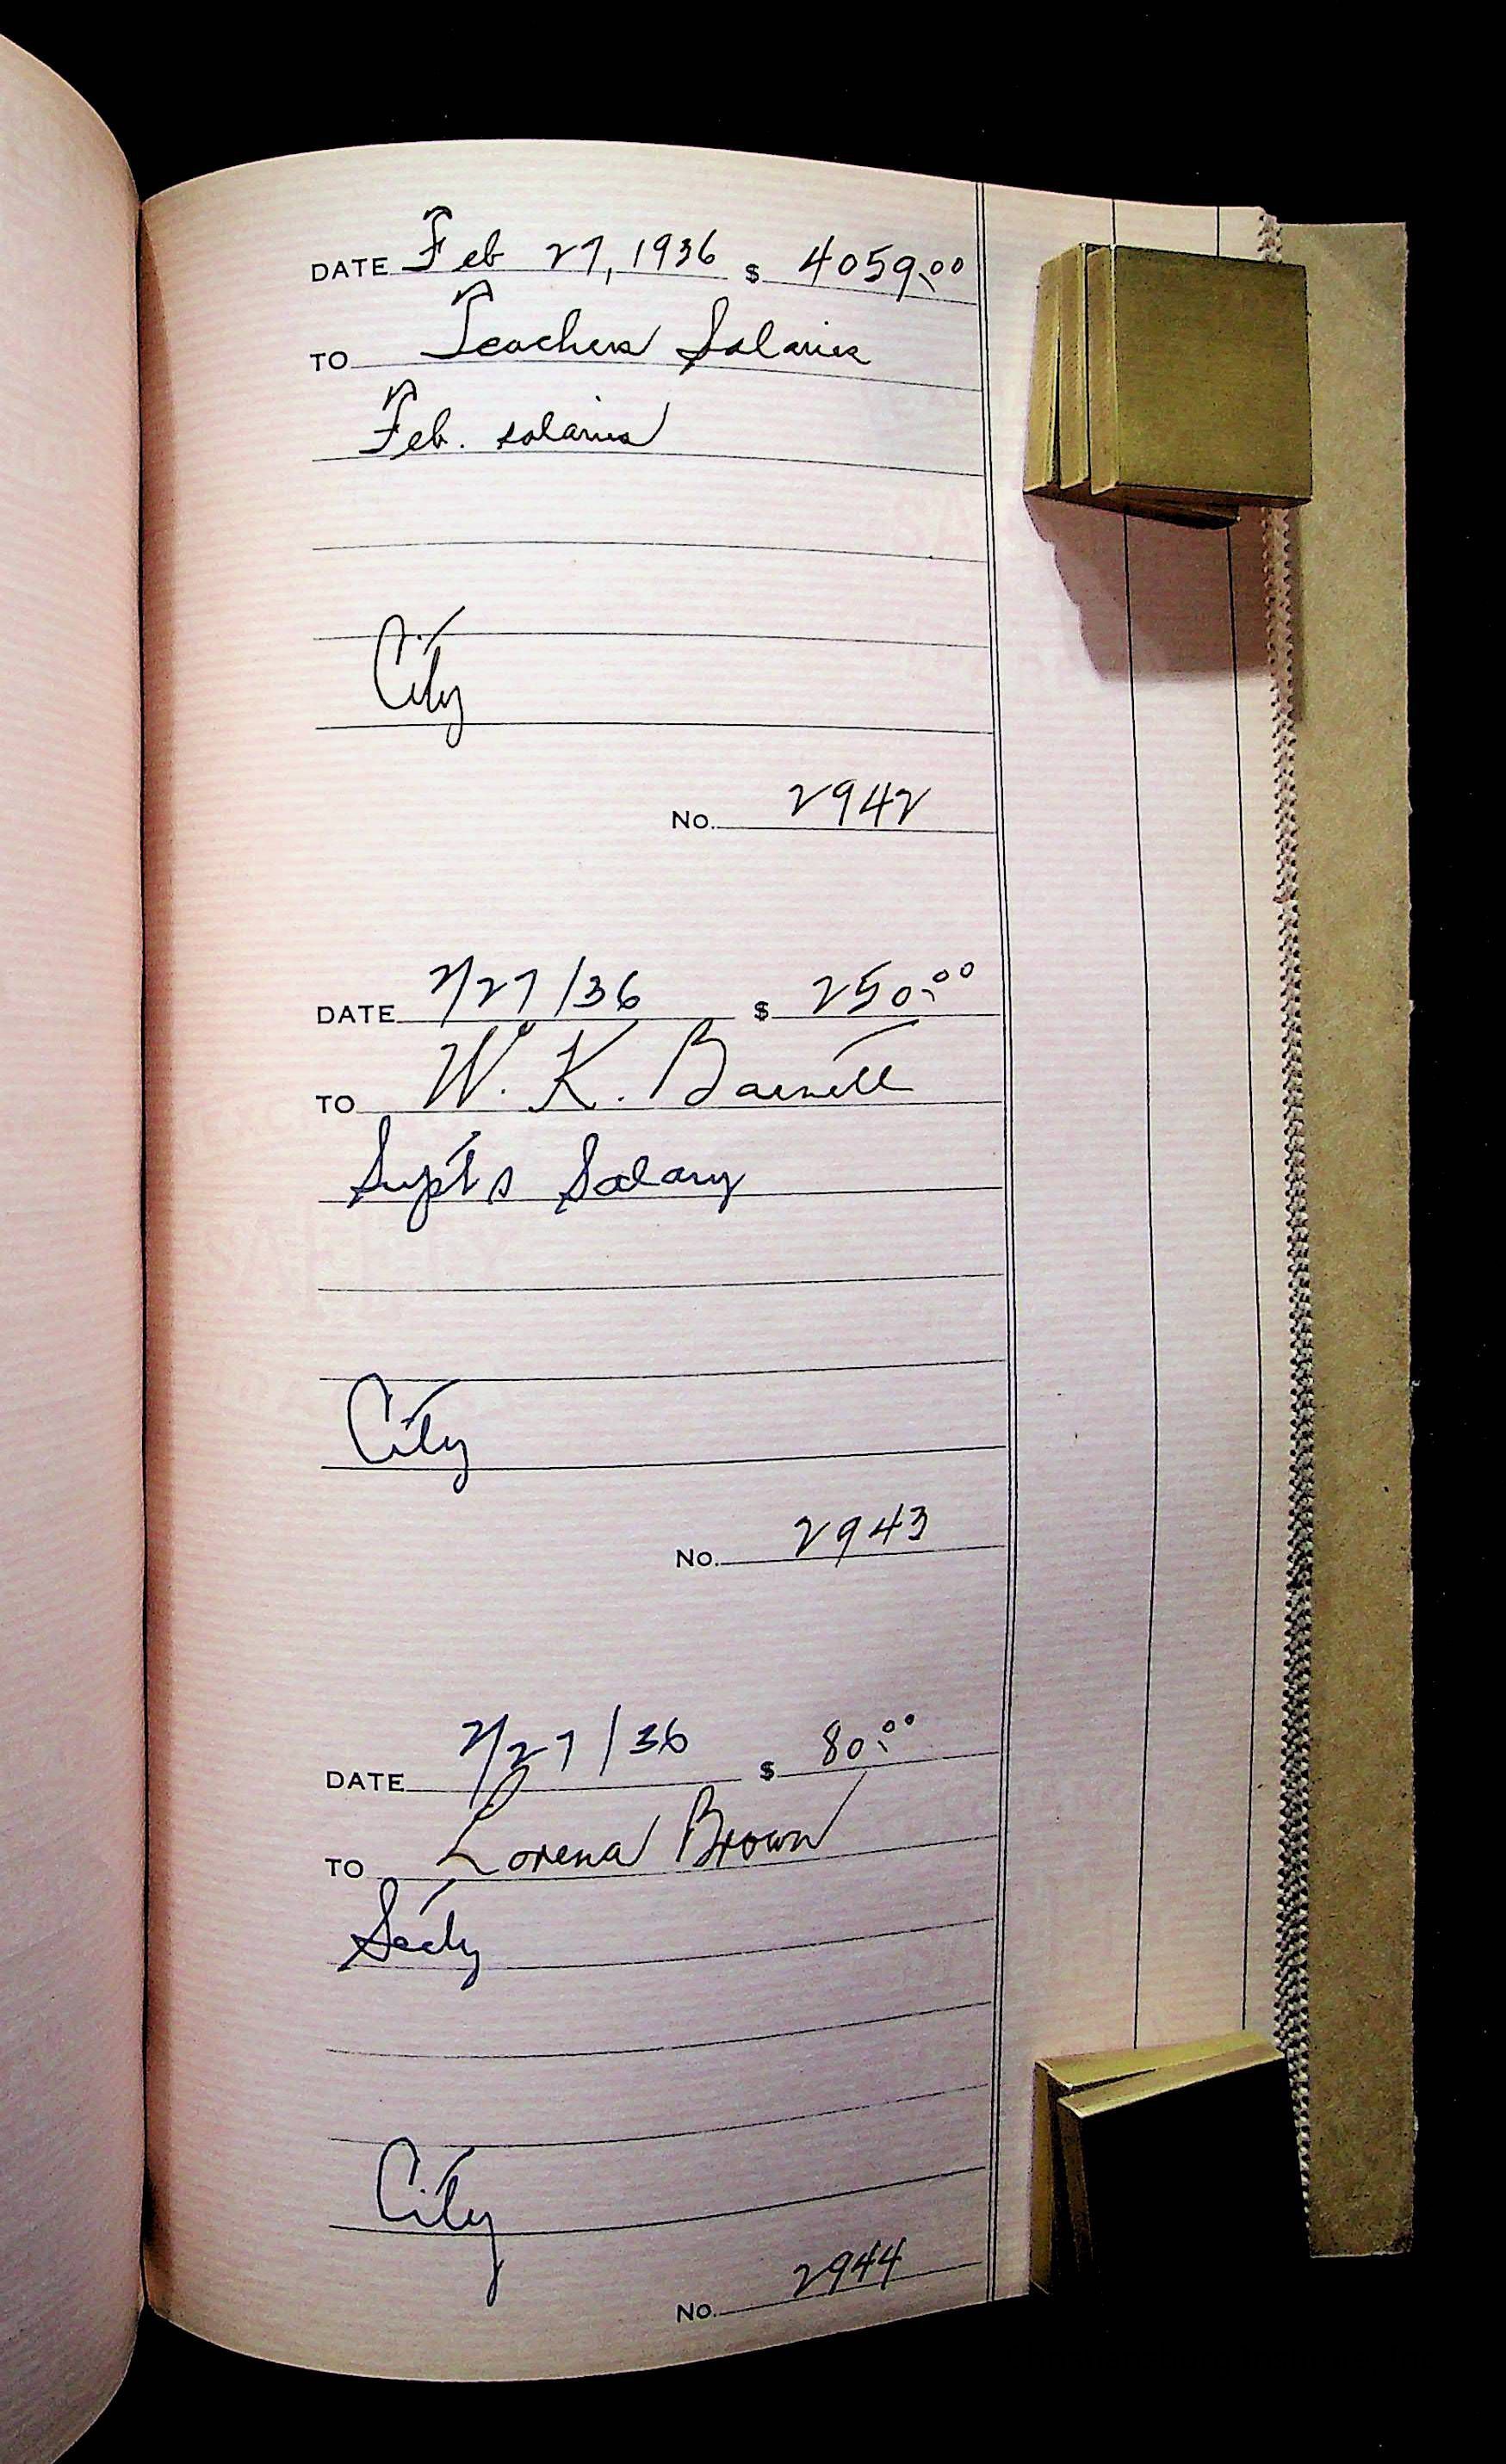 DATE Feb 27, 1936 $ 4059.00
TO Teachers Salaries
Feb. salaries
City
No. 2942
DATE 2/27/36 $ 250.00
TO W. K. Barnett
Supt's Salary
City
No. 2943
DATE 2/27/36 $ 80.00
TO Lorena Brown
Secty
City
No. 2944
SAFETY